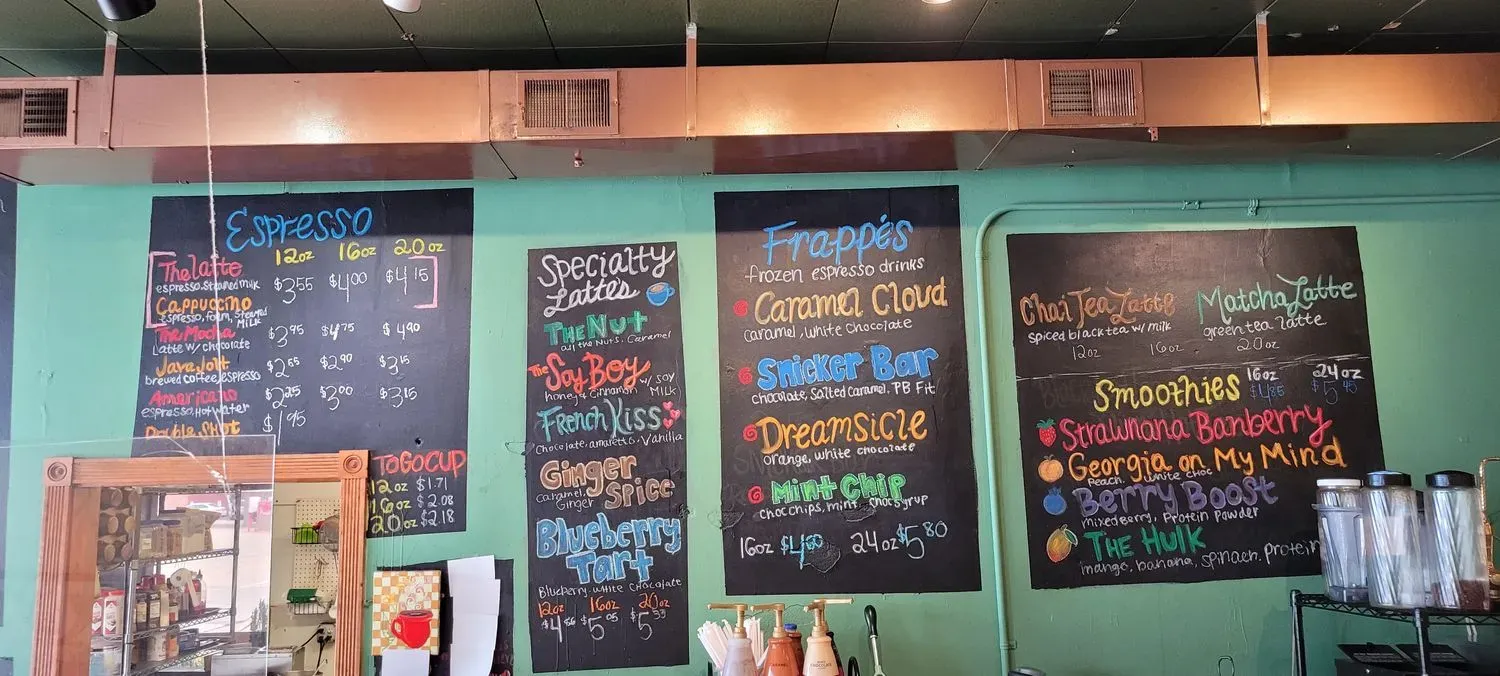 Espresso
12oz 16oz 20oz
The Latte
espresso, steamed milk
$3.55 $4.00 $4.15
Cappuccino
espresso, foam, steamed
milk
The Mocha $3.95 $4.75 $4.90
Latte w/ chocolate
Java Jolt $2.65 $2.90 $3.15
brewed coffee, espresso
Americano $2.25 $3.00 $3.15
espresso, Hot water
Double Shot $1.95
TO GO CUP
12oz $1.71
16oz $2.08
20oz $2.18
Specialty
Lattes
The Nut
all the Nuts, Caramel
The Soy Boy w/ soy
honey & cinnamon MILK
French Kiss
Chocolate, amaretto, Vanilla
Ginger
Spice
Caramel,
Ginger
Blueberry
Tart
Blueberry, white chocolate
12oz 16oz 20oz
$4 $5.05 $5
Frappés
frozen espresso drinks
Caramel Cloud
caramel, white chocolate
Snicker Bar
chocolate, salted caramel, PB Fit
Dreamsicle
orange, white chocolate
Mint Chip
choc chips, mint, choc syrup
16oz $4 24oz $5.80
Chai Tea Latte
spiced black tea w/ milk
Matcha Latte
green tea latte
12oz 16oz 20oz
Smoothies 16oz 24oz
$4.85 $5.45
Strawnana Banberry
Georgia on My Mind
Peach, white choc
Berry Boost
mixed berry, Protein powder
The Hulk
mango, banana, spinach, protein
CARAMEL
CHOCOLATE